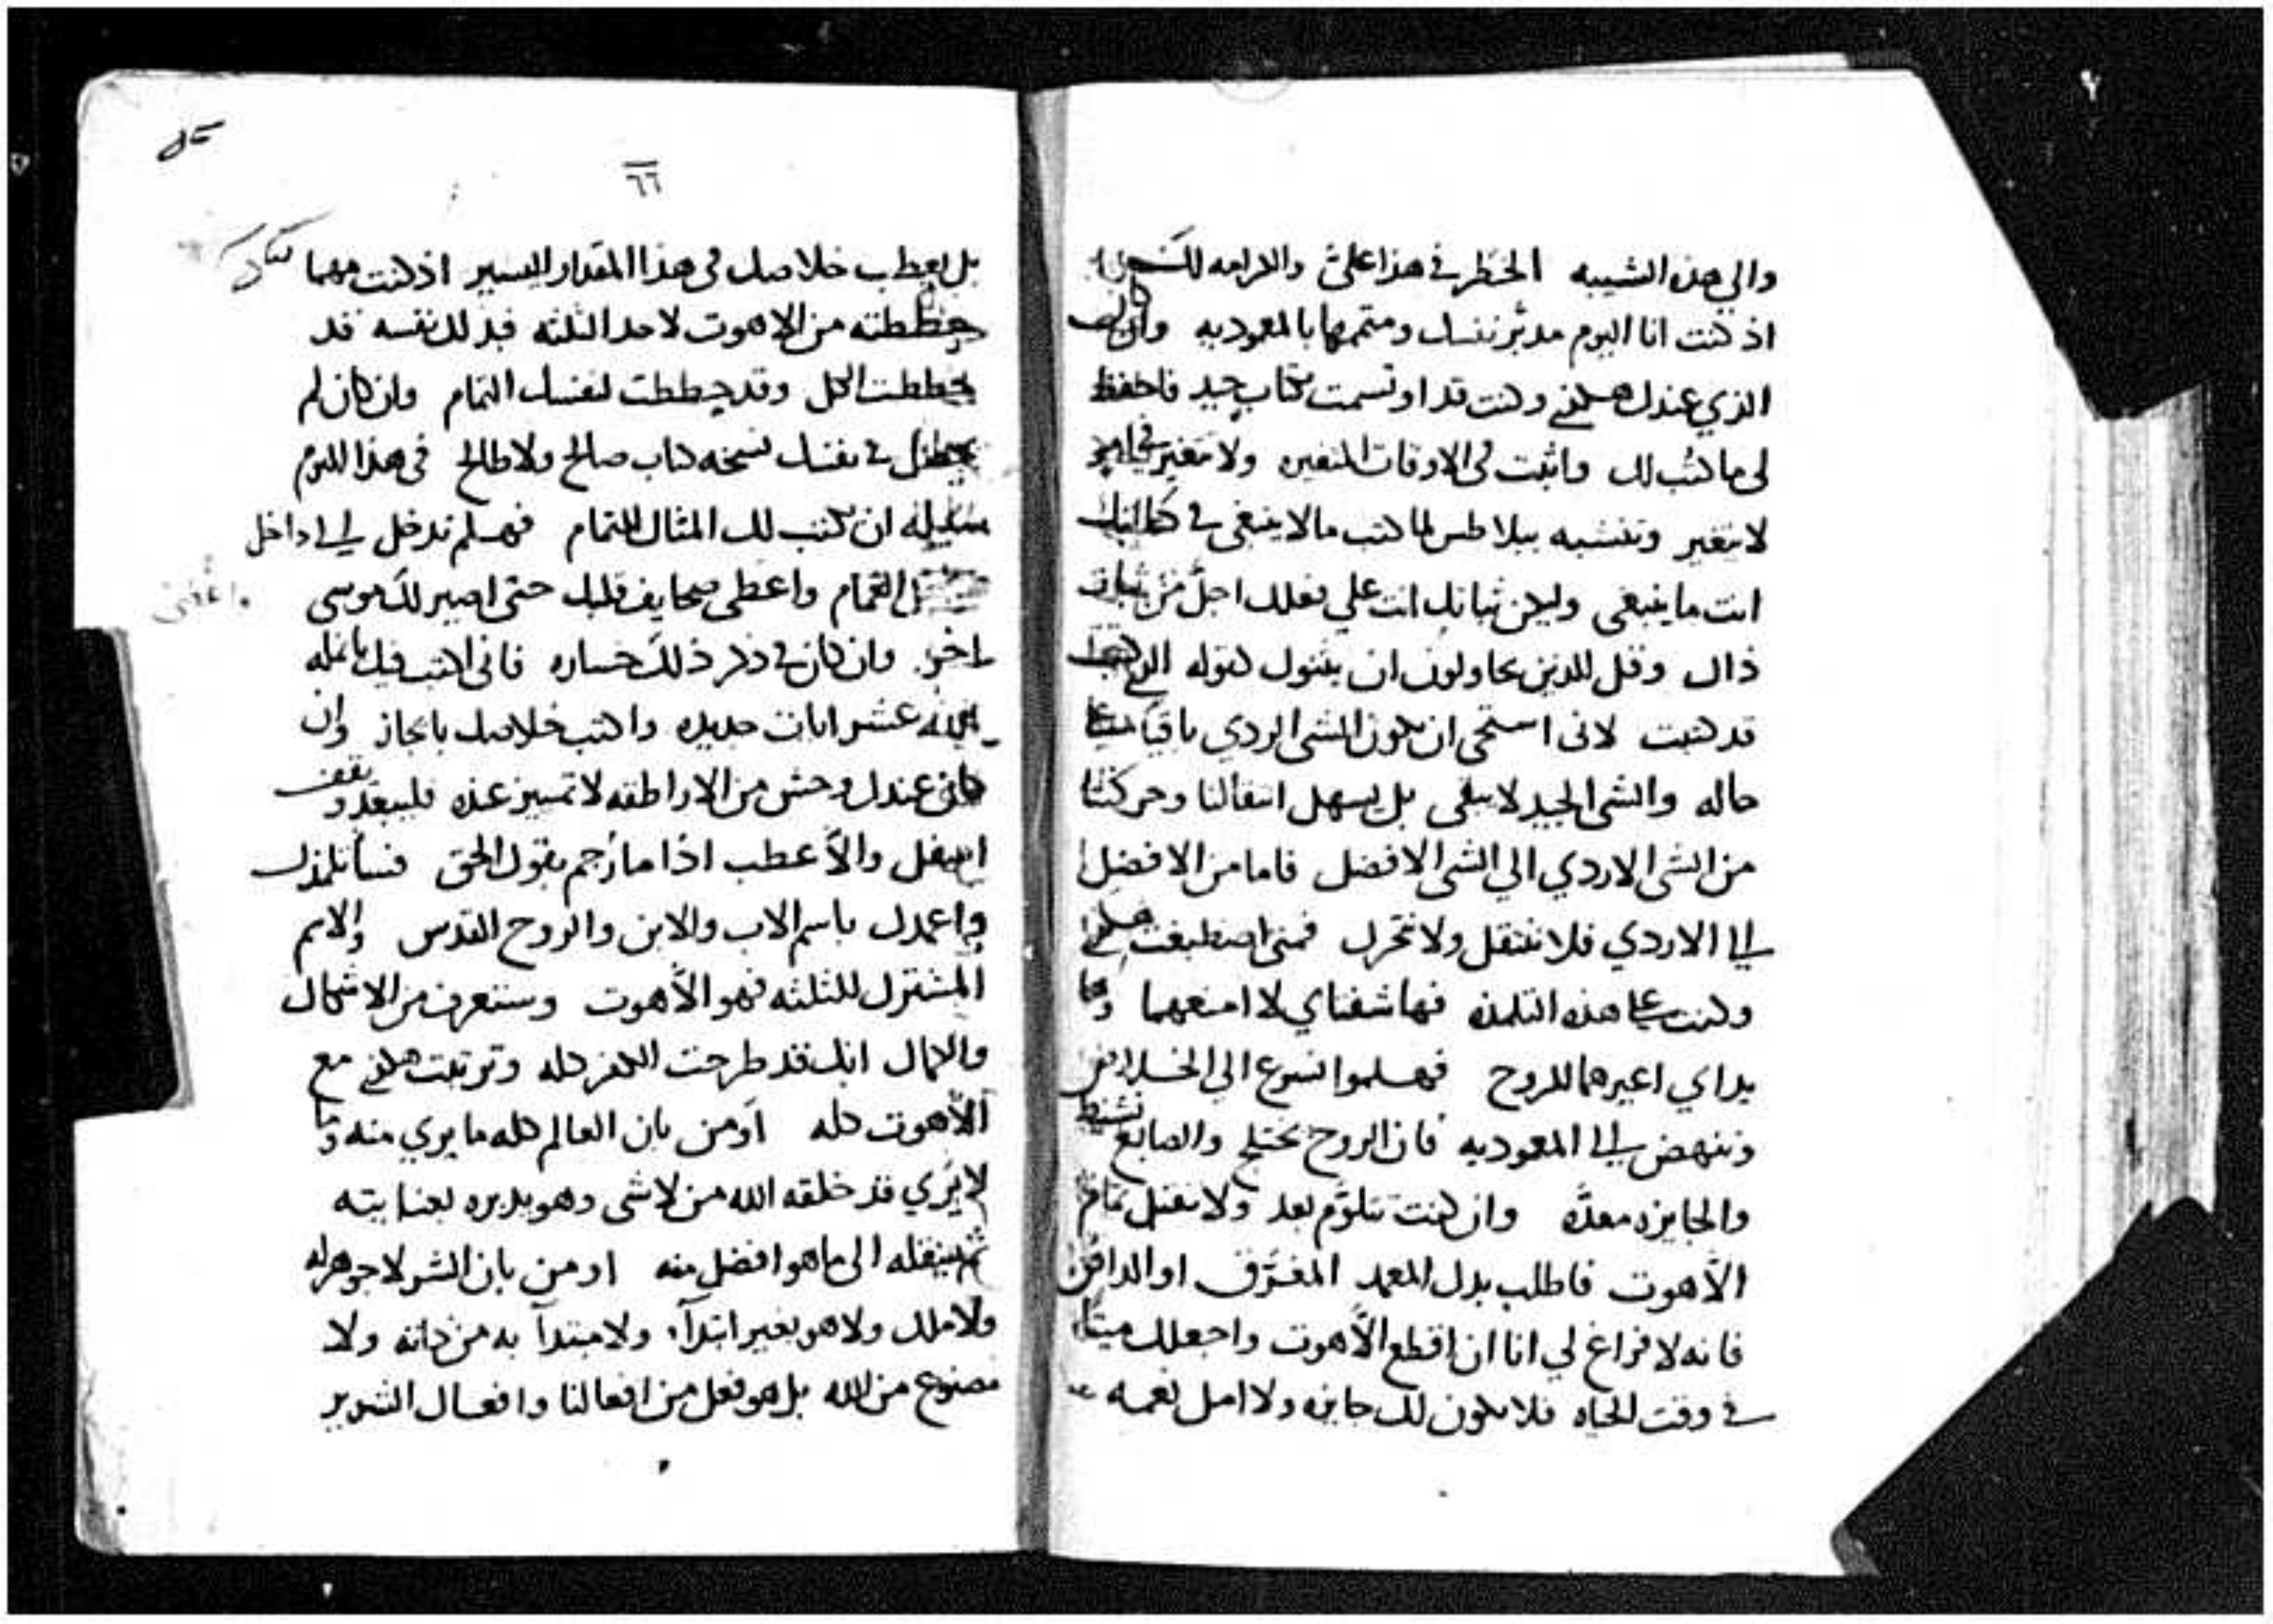 والي هذه الشيبه الخطر في هذا علي والكرامه
اذ كنت انا اليوم مدبر نفسك ومتممها بالمعوديه وان
الذي عندك وكنت قد اوتسمت بكتاب جيد فاحفظ
لي ما كتب لك واثبت في الاوقات المتغيره ولا تتغير في امر
لا يتغير وتتشبه ببلاطس لما كتب ما لا ينبغي في كتابتك
انت ما ينبغي وليكن ثباتك انت علي فعلك اجل من ثبات
ذاك وقل للذين يحاولون ان يثنوك كقوله الذي كتبت
قد كتبت لاني استحي ان يكون الشي الردي باقيا علي
حاله والشي الجيد لا يبقي بل يسهل انتقالنا وحركتنا
من الشي الاردي الي الشي الافضل فاما من الافضل
الي الاردي فلا ننتقل ولا نتحرك فمتي اصطبغت هكذي
وكنت علي هذه التلمذه فها شفتاي لا امنعهما وها
يداي اعيرهما للروح فهلموا نسرع الي الخلاص
وننهض الي المعوديه فان الروح يختلج والصابغ نشيط
والجايزه معده وان كنت تتلوم بعد ولا تقبل تمام
الاهوت فاطلب بدل المعمد المغرق او الدافن
فانه لا فراغ لي انا ان اقطع الاهوت واجعلك ميتا
في وقت الحياه فلا يكون لك جايزه ولا امل نعمه
٦٦
بل يعطب خلاصك في هذا المقدار اليسير اذ كنت مهما
حططته من الاهوت لاحد الثلثه فبذلك نفسه قد
حططت الكل وقد حططت لنفسك التمام وان كان لم
يحصل في نفسك نسخه كتاب صالح ولا طالح في هذا اليوم
سبيله ان يكتب لك المثال للتمام فهلم ندخل الي داخل
الغمام واعطي صحايف قلبك حتي اصير لك موسي
اخر وان كان في ذكر ذلك خساره فاني اكتب فيك بانمله
عشر ايات جديده واكتب خلاصك بايجاز وان
كان عندك وحش من الاراطقه لا تمييز عنده فليبعد ويقف
اسفل والا عطب اذا ما رجم بقول الحق فسأتلمذك
واعمدك باسم الاب والابن والروح القدس والاسم
المشترك للثلثه فهو الاهوت وستعرف من الاشكال
والكمال انك قد طرحت الكفر كله وترتبت هكذي مع
الاهوت كله اومن بان العالم كله ما يري منه وما
لا يري قد خلقه الله من لا شي وهو يدبره بعنايته
ثم سينقله الي ما هو افضل منه اومن بان الشر لا جوهر له
ولا ملك ولا هو بغير ابتدآ ولا مبتدآ به من ذاته ولا
مصنوع من الله بل هو فعل من افعالنا وافعال الشرير